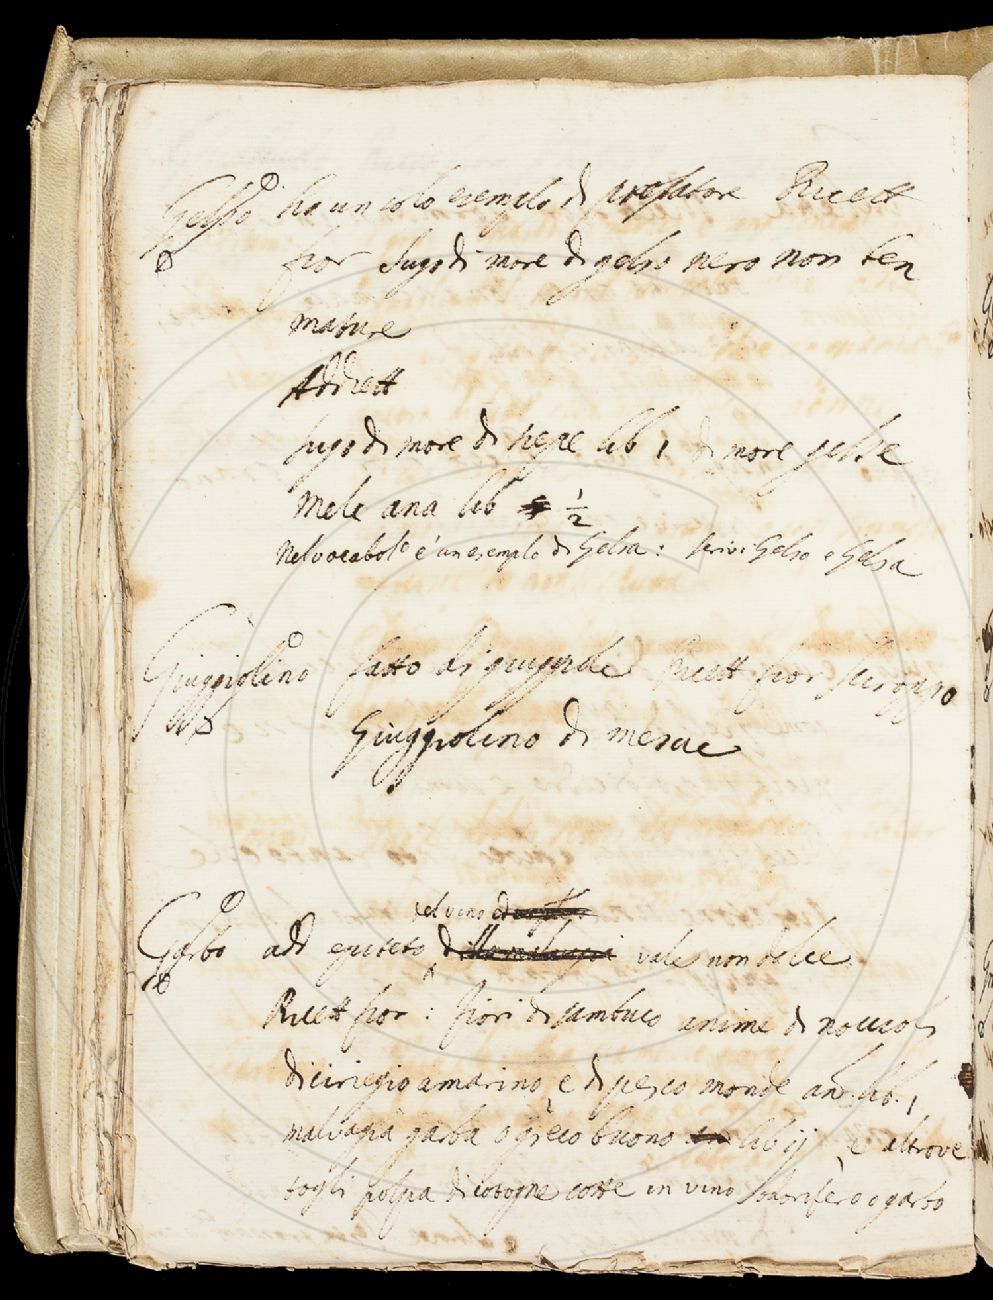 Gelso ha un solo esempio di prosatore Ricett
fior Sugo di more di gelso nero non ben
mature
Ad Ricett
sugo di more di siepe lib 1 di more gelse
mele ana lib 1/2
Nel vocabolo è un esempio di Gelsa: scrivi Gelso e Gelsa
Giuggiolino fatto di giuggiole Ricett fior
Giuggiolino di mesue
el vino
Garbo add epiteto vale non dolce
Ricett fior: fiori di sambuco anime di noccioli
di ciriegio amarino, e di pesco monde ana lib. 1
malvagia garba o greco buono lib ij, e altrove
togli polpa di cotogne cotte in vino o garbo